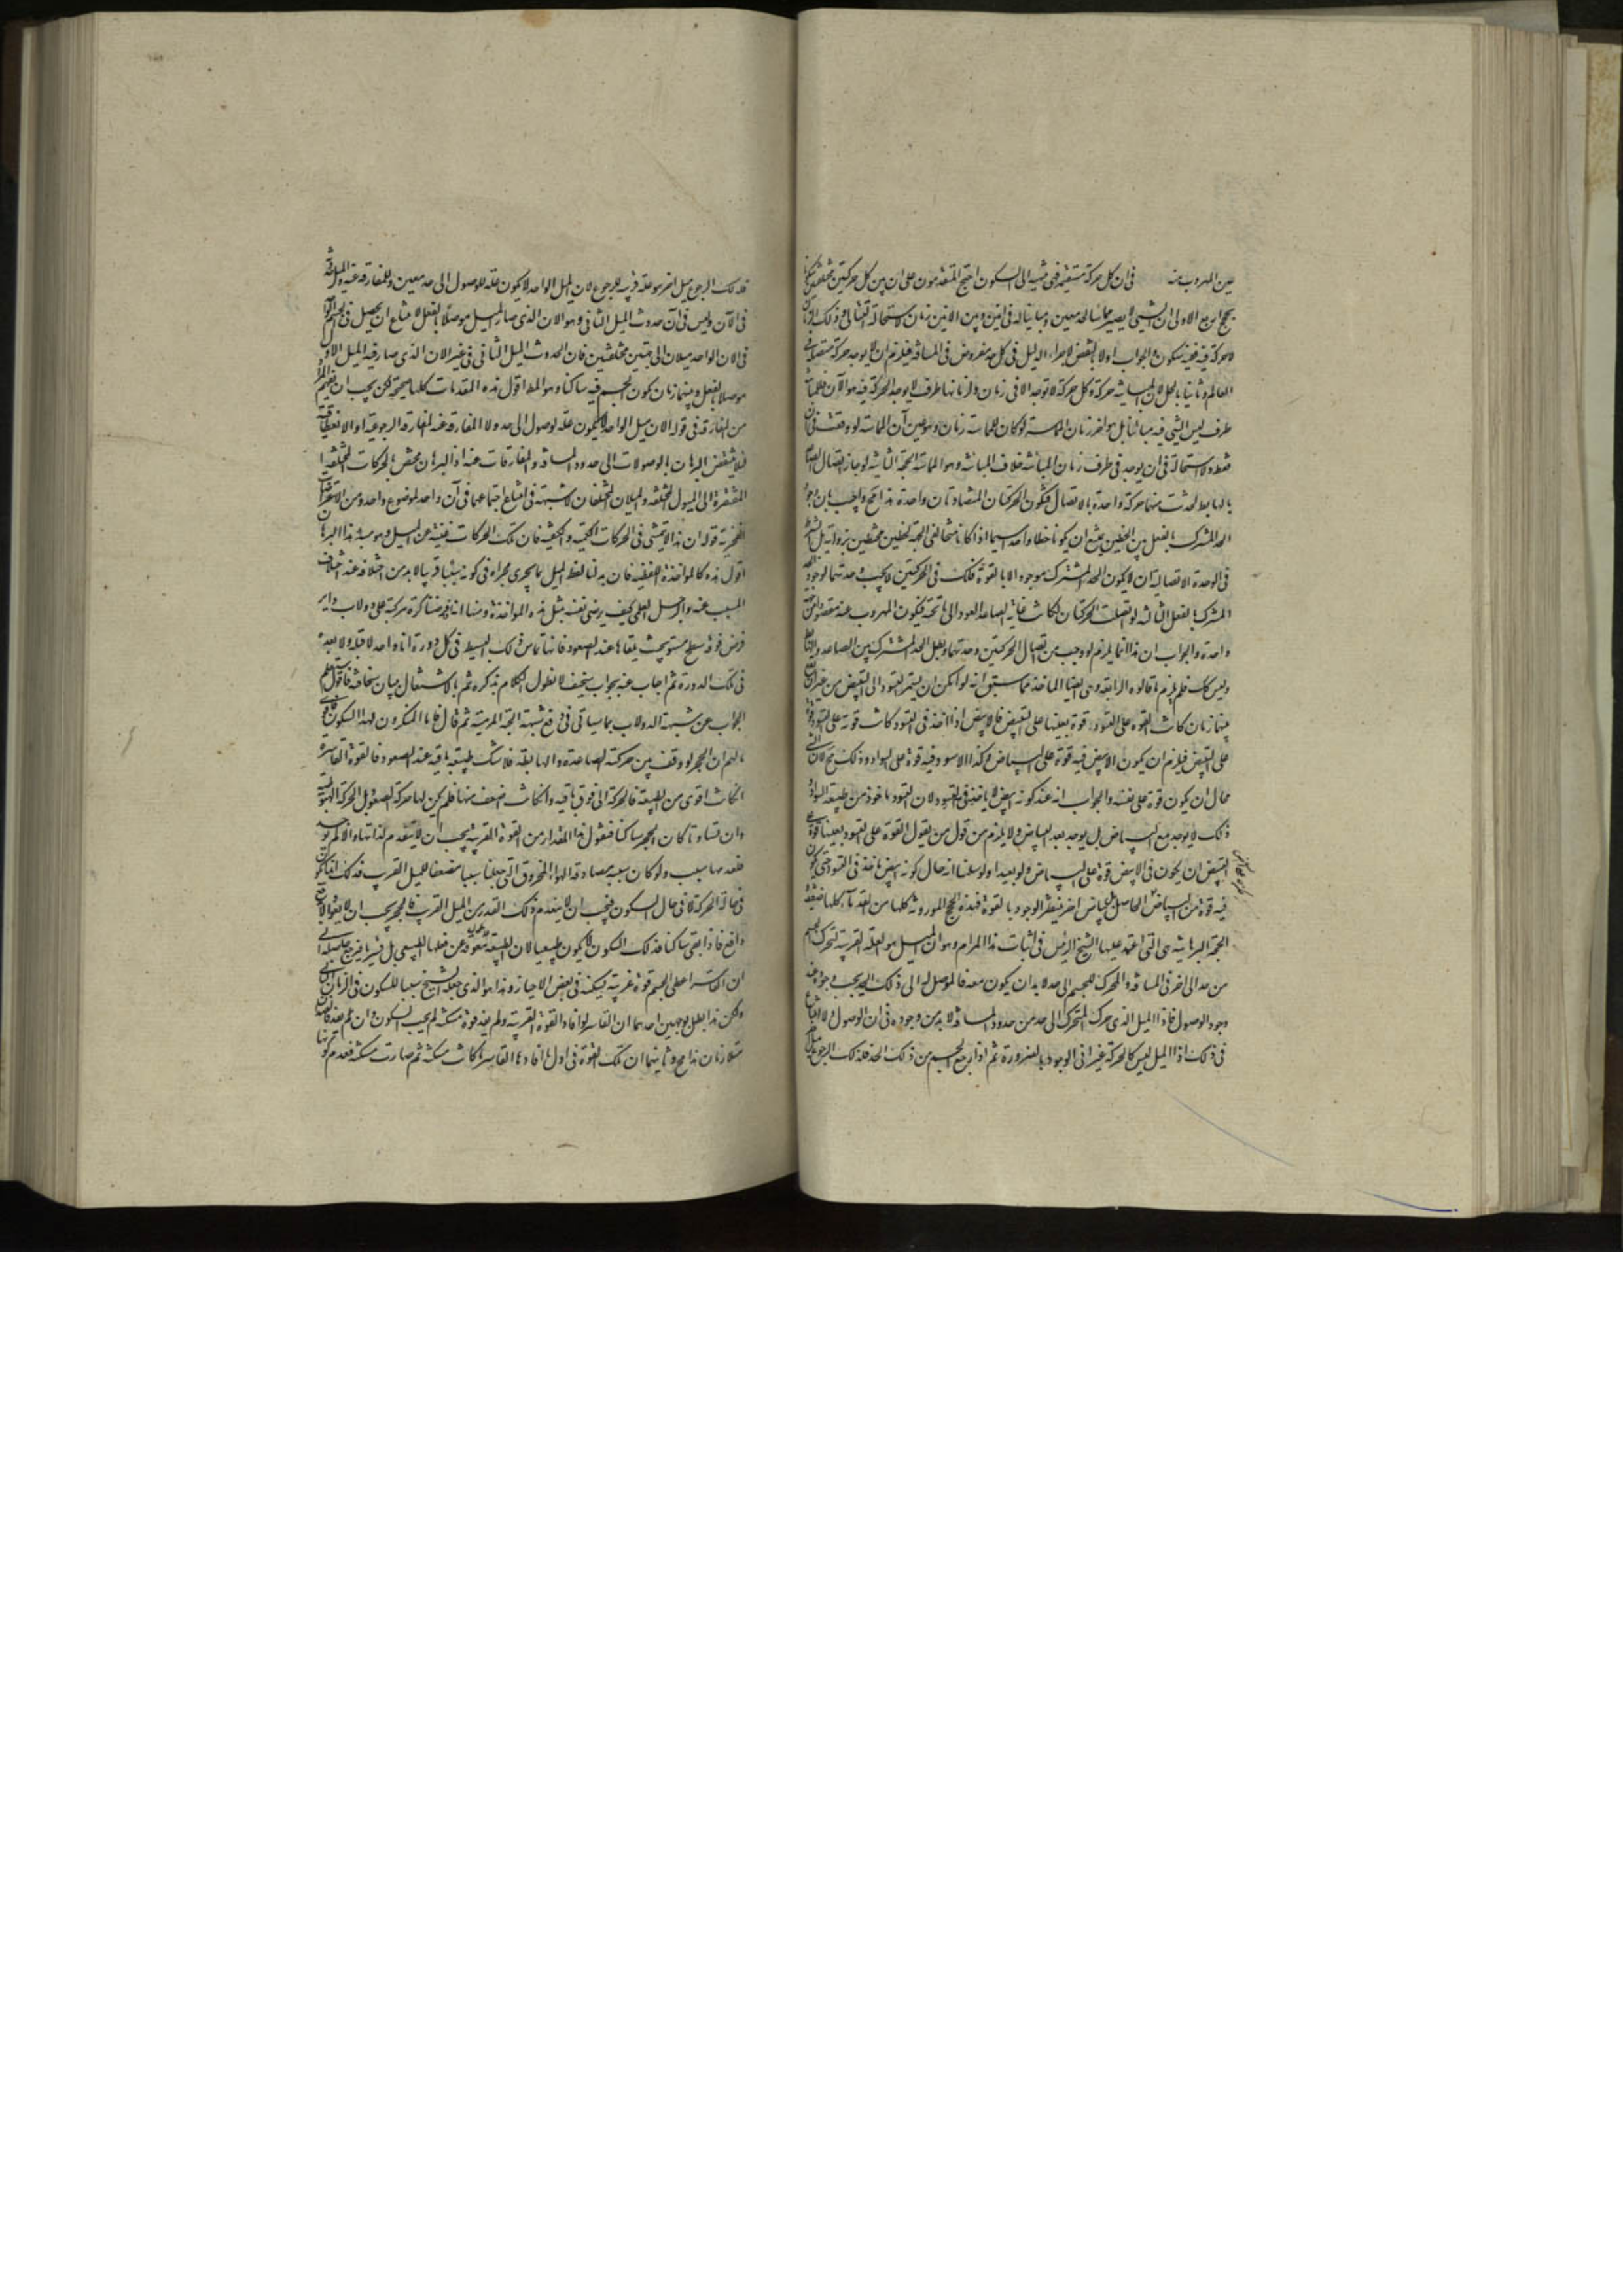 عين المهروب عنه في ان كل حركة مستقيمة فهي منتهية الى السكون احتج المتقدمون على ان بين كل حركتين مختلفتين
بحجج اربع الاولى ان الشيء لا يصير مماسا لحد معين ومباينا له في آنين وبين الآنين زمان لاستحالة التتالي وذلك الزمان
لا حركة فيه ففيه سكون والجواب اولا بالنقض لاجراء الدليل في كل حد مفروض في المسافة فيلزم ان لا يوجد حركة متصلة في
العالم وثانيا بالحل لان المباينة حركة وكل حركة لا توجد الا في زمان ولزمانها طرف لا يوجد الحركة فيه هو الآن فللمباينة
طرف ليس الشيء فيه مباينا بل هو اخر زمان المماسة لو كان للمماسة زمان وهو عين آن المماسة لو وقعت في آن
فقط ولا استحالة في ان يوجد في طرف زمان المباينة خلاف المباينة وهو المماسة الحجة الثانية لو جاز اتصال الصاعدة
بالهابطة لحدثت منهما حركة واحدة بالاتصال فتكون الحركتان المتضادتان واحدة هذا مح واجيب بان وجود
الحد المشترك بالفعل بين الخطين يمنع ان يكونا خطا واحدا سيما اذا كانا متخالفي الجهة كخطين محيطين بزاوية بل الشرط
في الوحدة الاتصالية ان لا يكون الحد المشترك موجودا الا بالقوة فكذلك في الحركتين لا يجب وحدتهما لوجود الحد
المشترك بالفعل الثالثة لو اتصلت الحركتان لكانت غاية الصاعد العود الى ما تحته فيكون المهروب عنه مقصودا من جهة
واحدة والجواب ان هذا انما يلزم لو وجب من اتصال الحركتين وحدتهما وبطل الحد المشترك بين الصاعد والهابط
وليس كك فلم يلزم ما قالوه الرابعة وهي لعلها الماخذ مما سبق انه لو امكن ان يستمر التسود الى التبيض من غير ان يقع
بينهما زمان كانت القوة على التسود قوة بعينها على التبيض فالابيض اذا اخذ في التسود كانت قوته على التسود قوة
على التبيض فيلزم ان يكون الابيض فيه قوة على البياض وكذا الاسود وفيه قوة على السواد وذلك مح لان الشيء
محال ان يكون قوة على نفسه والجواب انه عند كونه ابيض لا ياخذ في التسود لان التسود ماخوذ من طبيعة السواد
ذلك لا يوجد مع البياض بل يوجد بعد البياض ولا يلزم من قول من يقول القوة على التسود بعينها قوة على
التبيض ان يكون في الابيض قوة على البياض ولو بعيدا ولو سلمنا انه حال كونه ابيض ياخذ في التسود حتى يكون
فيه قوة من البياض الحاصل بل بياض اخر منتظر الوجود بالقوة فهذه الحجج الموروثة كلها من القدماء كلها ضعيفة
الحجة البرهانية هي التي اعتمد عليها الشيخ الرئيس في اثبات هذا المرام وهو ان الميل هو العلة القريبة لتحرك الجسم
من حد الى اخر في المسافة والمحرك للجسم الى حد لا بد ان يكون معه فالموصل له الى ذلك الحد يجب وجوده عند
وجود الوصول فاذا الميل الذي حرك المتحرك الى حد من حدود المسافة لا بد من وجوده في ان الوصول ولا امتناع
في ذلك اذ الميل ليس كالحركة غير اني الوجود بالضرورة ثم اذا رجع الجسم من ذلك الحد فلذلك الرجوع ميل
فلذلك الرجوع ميل اخر هو علة قريبة للرجوع لان الميل الواحد لا يكون علة للوصول الى حد معين وللمفارقة عنه والميل
في الآن وليس في آن حدوث الميل الثاني وهو الان الذي صار الميل موصلا بالفعل لامتناع ان يحصل في الجسم
في الان الواحد ميلان الى جهتين مختلفتين فان لحدوث الميل الثاني في غير الان الذي صار فيه الميل الاول
موصلا بالفعل وبينهما زمان يكون الجسم فيه ساكنا وهو المط اقول هذه المقدمات كلها صحيحة لكن يجب ان يفهم المراد
من المفارقة في قوله الان ميل الواحد لا يكون علة لوصول الى حد ولا المفارقة عنه المفارقة الرجوعية او الانعطافية
فلا ينتقض البرهان بالوصولات الى حدود المسافة والمفارقات عنه اذ البرهان مختص بالحركات المختلفة
المفتقرة الى الميول المختلفة والميلان المختلفان لا شبهة في امتناع اجتماعهما في آن واحد لموضوع واحد ومن الاعتراضات
الفخرية قوله ان هذا لا يتمشى في الحركات الكمية والكيفية فان تلك الحركات غنية عن الميل وهو مبنى هذا البرهان
اقول هذه كالمواخذة اللفظية فان بدلنا لفظ الميل بما يجري مجراه في كونه سببا قريبا لا بد من اختلافه عند اختلاف
المسبب عنه والرجل العلمي كيف يرضى نفسه بمثل هذه المواخذة ومنها انا فرضنا كرة مركبة على دولاب دائر
فرض فوقه سطح مستو بحيث يلقاها عند الصعود فانها تماس ذلك البسيط في كل دورة آنا واحدا لا قبله ولا بعده
في تلك الدورة ثم اجاب عنه بجواب سخيف لا نطول الكلام بذكره ثم بالاشتغال ببيان سخافته فاقول
الجواب عن شبهة الدولاب بما سياتي في دفع شبهة الحبة المرمية ثم قال فاما المنكرون لهذا السكون
مالهم ان الحجر لو وقف بين حركته الصاعدة والهابطة فلا شك طبيعته باقية عند الصعود فالقوة القاسرة
انكانت اقوى من الطبيعة فالحركة الى فوق باقية وانكانت ضعف منها فلم يكن لها حركة لصعود بل الحركة الهبوطية
وان تساوتا كان الحجر ساكنا فنقول هذا المقدار من القوة القريبة يجب ان لا ينعدم لذاتها والا لم يوجد
فعدمها بسبب ولو كان سببه مصادقة الهواء المخروق التي جعلنا سببا مضعفا للميل القريب فذلك انما يكون
في حالة الحركة لا في حال السكون فيجب ان لا ينعدم ذلك القدر من الميل القريب فالحجر يجب ان لا يعود الا
دافع فاذا بقي ساكنا فذلك السكون لا يكون طبيعيا لان الطبيعة معوقة عن فعلها الطبيعي بل قسريا فيرجع حاصله الى
ان القاسر اعطى الجسم قوة غريبة يسكنه في بعض الاحياز وهذا هو الذي جعله الشيخ سببا للسكون في الزمان
ولكن هذا بطل بوجهين احدهما ان القاسر لو افاد القوة القريبة ولم يفد قوة مسكنة لم يجب السكون وان لم يفد
متلازمان هذا مح وثانيهما ان تلك القوة في اول ما افادها القاسر ما كانت مسكنة ثم صارت مسكنة فعدم كونها